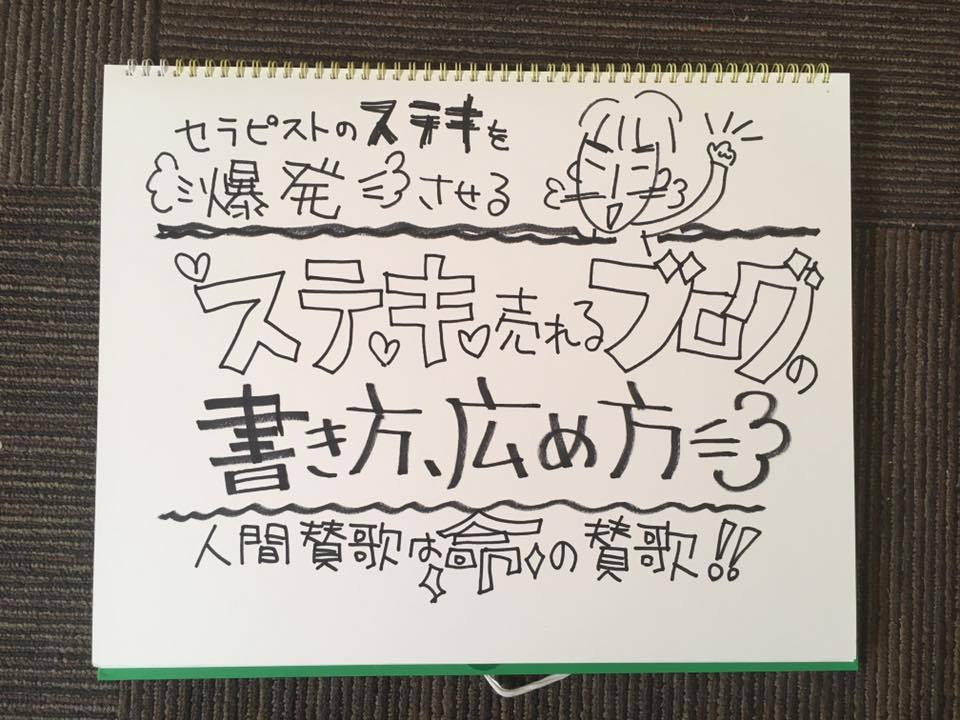 セラピストのステキを
爆発させる
ステキ売れるブログの
書き方、広め方
人間賛歌は命の賛歌!!